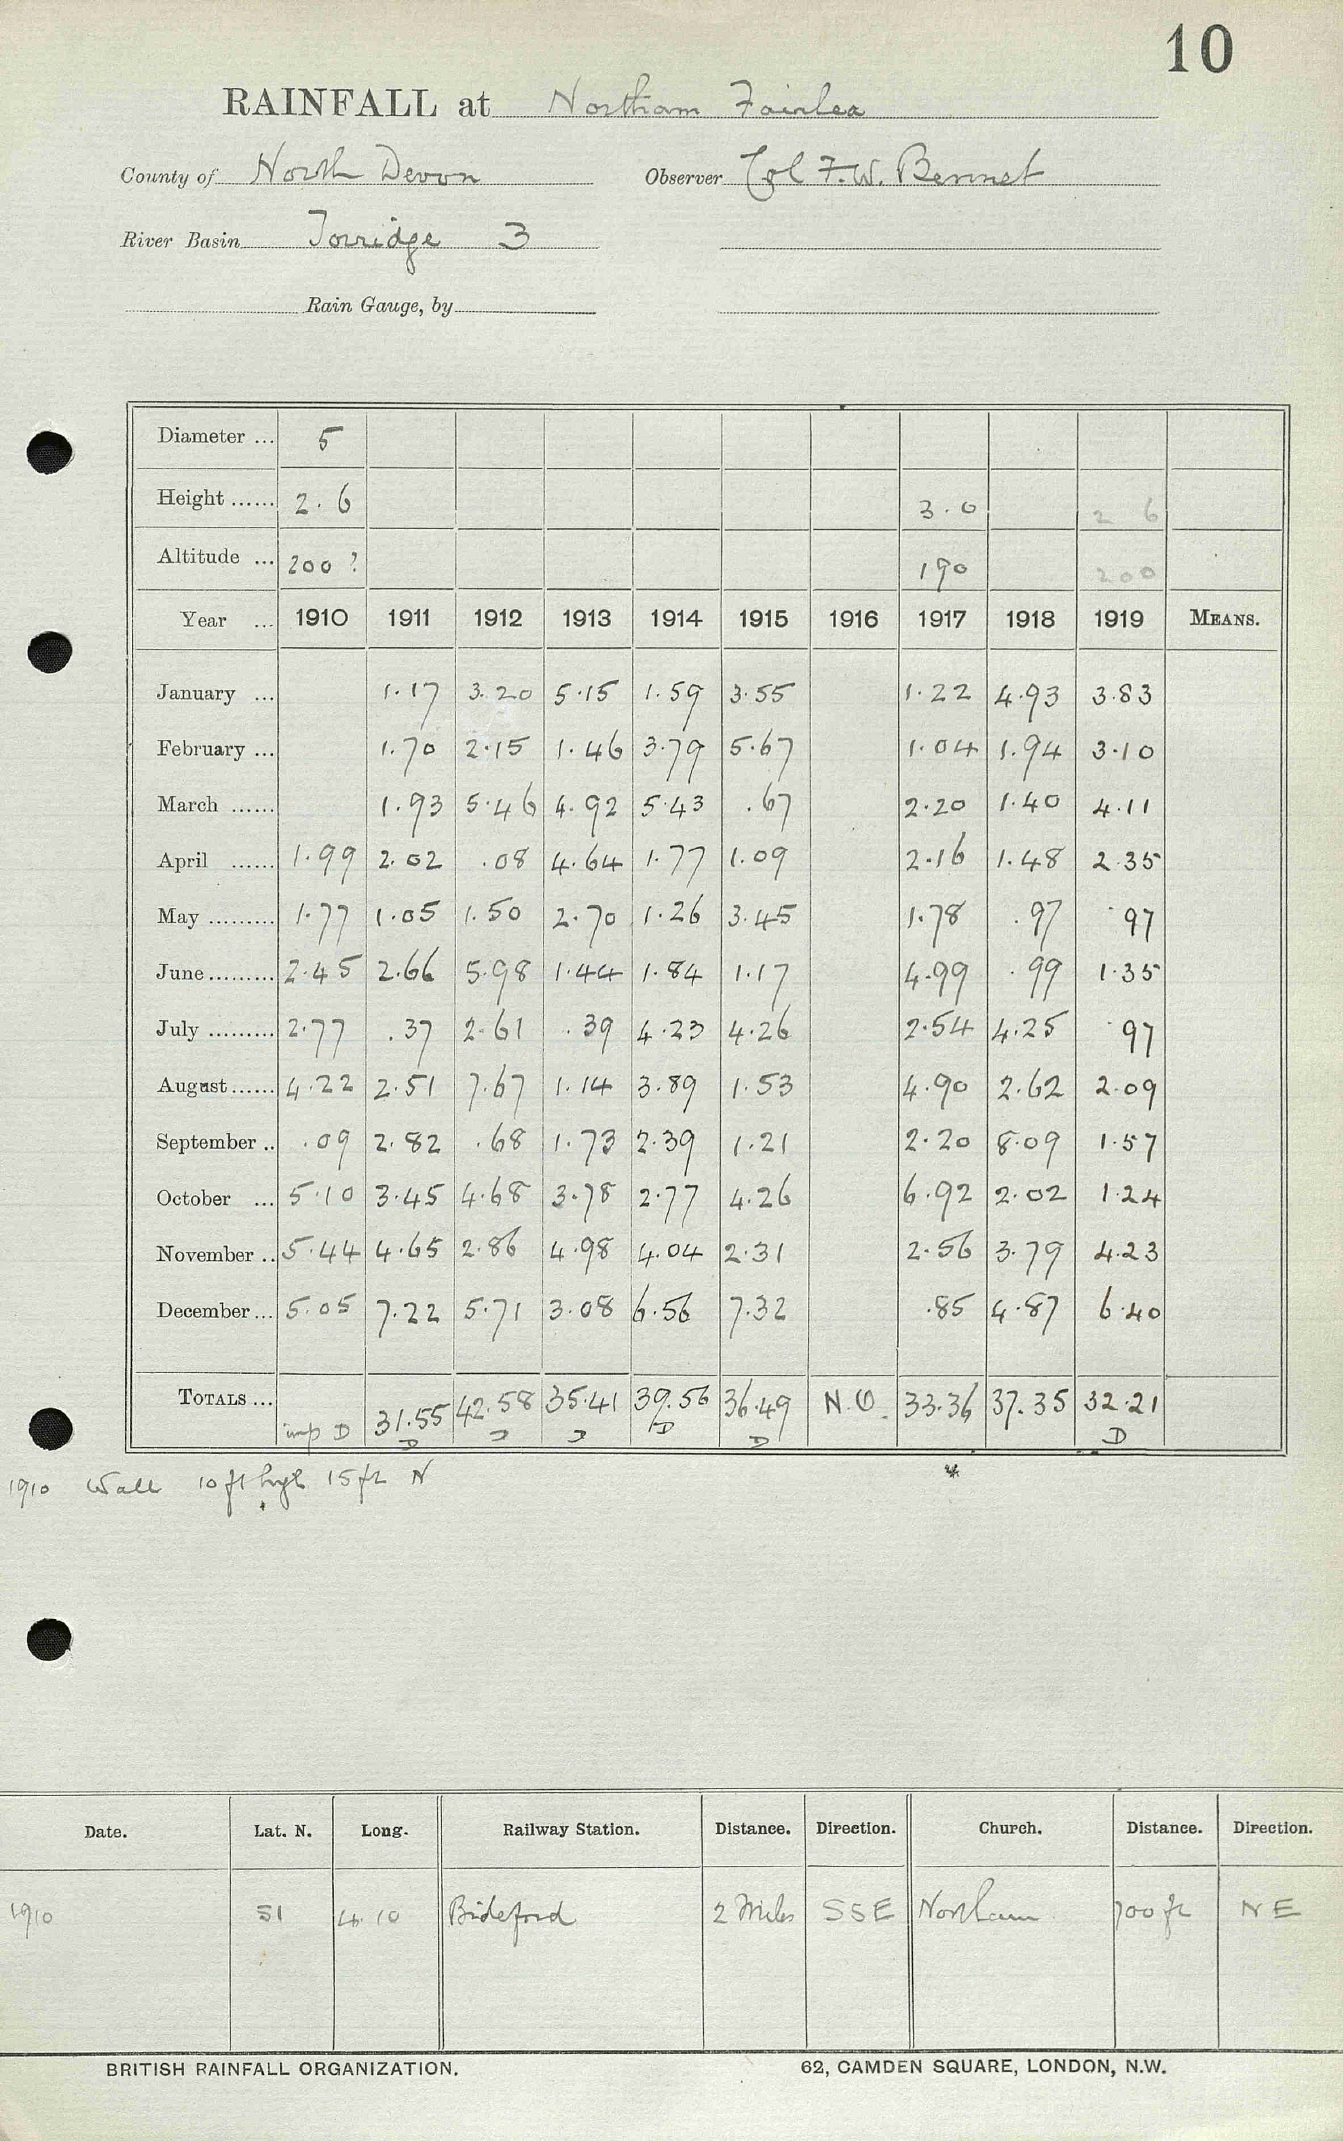 10
RAINFALL at Northam Fairlea
County of North Devon Observer Col F.W. Bennet
River Basin Torridge 3
Rain Gauge, by
Diameter ... 5
Height ...... 2.6 3.0 2 6
Altitude ... 200 ? 190 200
Year ... 1910 1911 1912 1913 1914 1915 1916 1917 1918 1919 MEANS.
January ... 1.17 3.20 5.15 1.59 3.55 1.22 4.93 3.83
February ... 1.70 2.15 1.46 3.79 5.67 1.04 1.94 3.10
March ...... 1.93 5.46 4.92 5.43 .67 2.20 1.40 4.11
April ...... 1.99 2.02 .08 4.64 1.77 1.09 2.16 1.48 2.35
May ......... 1.77 1.05 1.50 2.70 1.26 3.45 1.78 .97 .97
June ......... 2.45 2.66 5.98 1.44 1.84 1.17 4.99 .99 1.35
July ......... 2.77 .37 2.61 .39 4.23 4.26 2.54 4.25 .97
August ...... 4.22 2.51 7.67 1.14 3.89 1.53 4.90 2.62 2.09
September .. .09 2.82 .68 1.73 2.39 1.21 2.20 8.09 1.57
October ... 5.10 3.45 4.68 3.78 2.77 4.26 6.92 2.02 1.24
November .. 5.44 4.65 2.86 4.98 4.04 2.31 2.56 3.79 4.23
December ... 5.05 7.22 5.71 3.08 6.56 7.32 .85 4.87 6.40
TOTALS ... 31.55 42.58 35.41 39.56 36.49 N.O. 33.36 37.35 32.21
imp D D D D D D D
1910 Wall 10 ft high 15 ft N
Date. Lat. N. Long. Railway Station. Distance. Direction. Church. Distance. Direction.
1910 51 4.10 Bideford 2 Miles SSE Northam 700 ft NE
BRITISH RAINFALL ORGANIZATION. 62, CAMDEN SQUARE, LONDON, N.W.